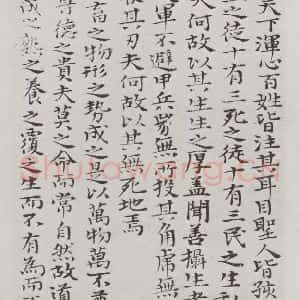 天下渾心百姓皆注其耳目聖人皆孩
之徒十有三死之徒十有三民之生
夫何故以其生生之厚蓋聞善攝生者
軍不避甲兵兕無投其角虎無
其刃夫何故以其無死地焉
畜之物形之勢成之是以萬物不
尊德之貴夫莫之命而常自然故道
成之熟之養之覆生而不有為而
Shufawang.CN